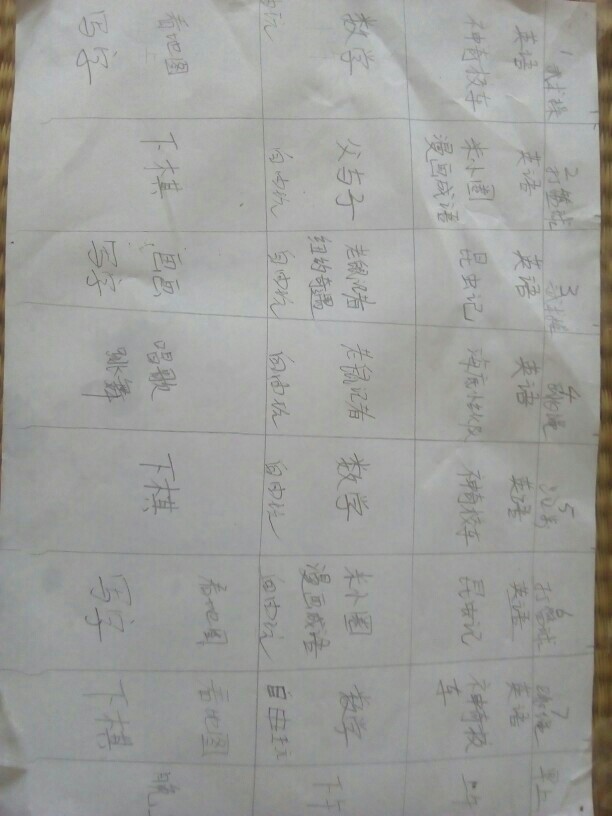 1 2 3 4 5 6 7
打篮球 跳绳 打篮球 跳绳 早上
英语 英语 英语 英语 英语 英语 英语
神奇校车 米小圈 昆虫记 神奇校车 昆虫记 神奇校车 上午
漫画成语
数学 父与子 老鼠记者 老鼠记者 数学 米小圈 数学 下午
纽约奇遇 漫画成语
自由玩 自由玩 自由玩 自由玩 自由玩 自由玩 自由玩
看地图 下棋 画画 唱歌 下棋 看地图 看地图 晚上
写字 写字 跳舞 写字 下棋